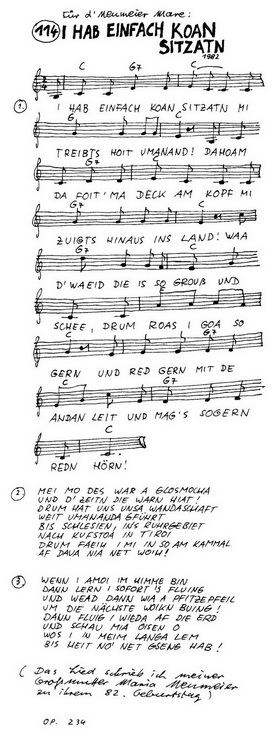 Für d' Neumeier Mare:
114 I HAB EINFACH KOAN
SITZATN
1982
C G7 C
1. I HAB EINFACH KOAN SITZATN MI
G7
TREIBTS HOIT UMANAND! DAHOAM
G7 C
DA FOIT' MA DECK AM KOPF MI
G7 C
ZUIGTS HINAUS INS LAND! WAA
G7
D'WAEID DIE IS SO GROUß UND
C
SCHEE, DRUM ROAS I GOA SO
C G7
GERN UND RED GERN MIT DE
C G7
ANDAN LEIT UND MAG'S SOGERN
C
REDN HÖRN!
2. MEI MO DES WAR A GLOSMOCHA
UND D'ZEITN DIE WARN HIAT!
DRUM HAT UNS UNSA WANDASCHAFT
WEIT UMANANDA GFÜHRT
BIS SCHLESIEN, INS RUHRGEBIET
NACH KUFSTOA IN TIROI
DRUM FAEIH I MI IN SO AM KAMMAL
AF DAVA NIA NET WOIH!
3. WENN I AMOI IM HIMME BIN
DANN LERN I SOFORT 'S FLUING
UND WEAD DANN WIA A PFITZEPFEIL
UM DIE NÄCHSTE WOIKN BUING!
DANN FLUIG I WIEDA AF DIE ERD
UND SCHAU MIA OISEN O
WOS I IN MEIM LANGA LEM
BIS HEIT NO' NET GSENG HAB!
(Das Lied schrieb ich meiner
Großmutter Maria Neumeier
zu ihrem 82. Geburtstag)
OP. 234